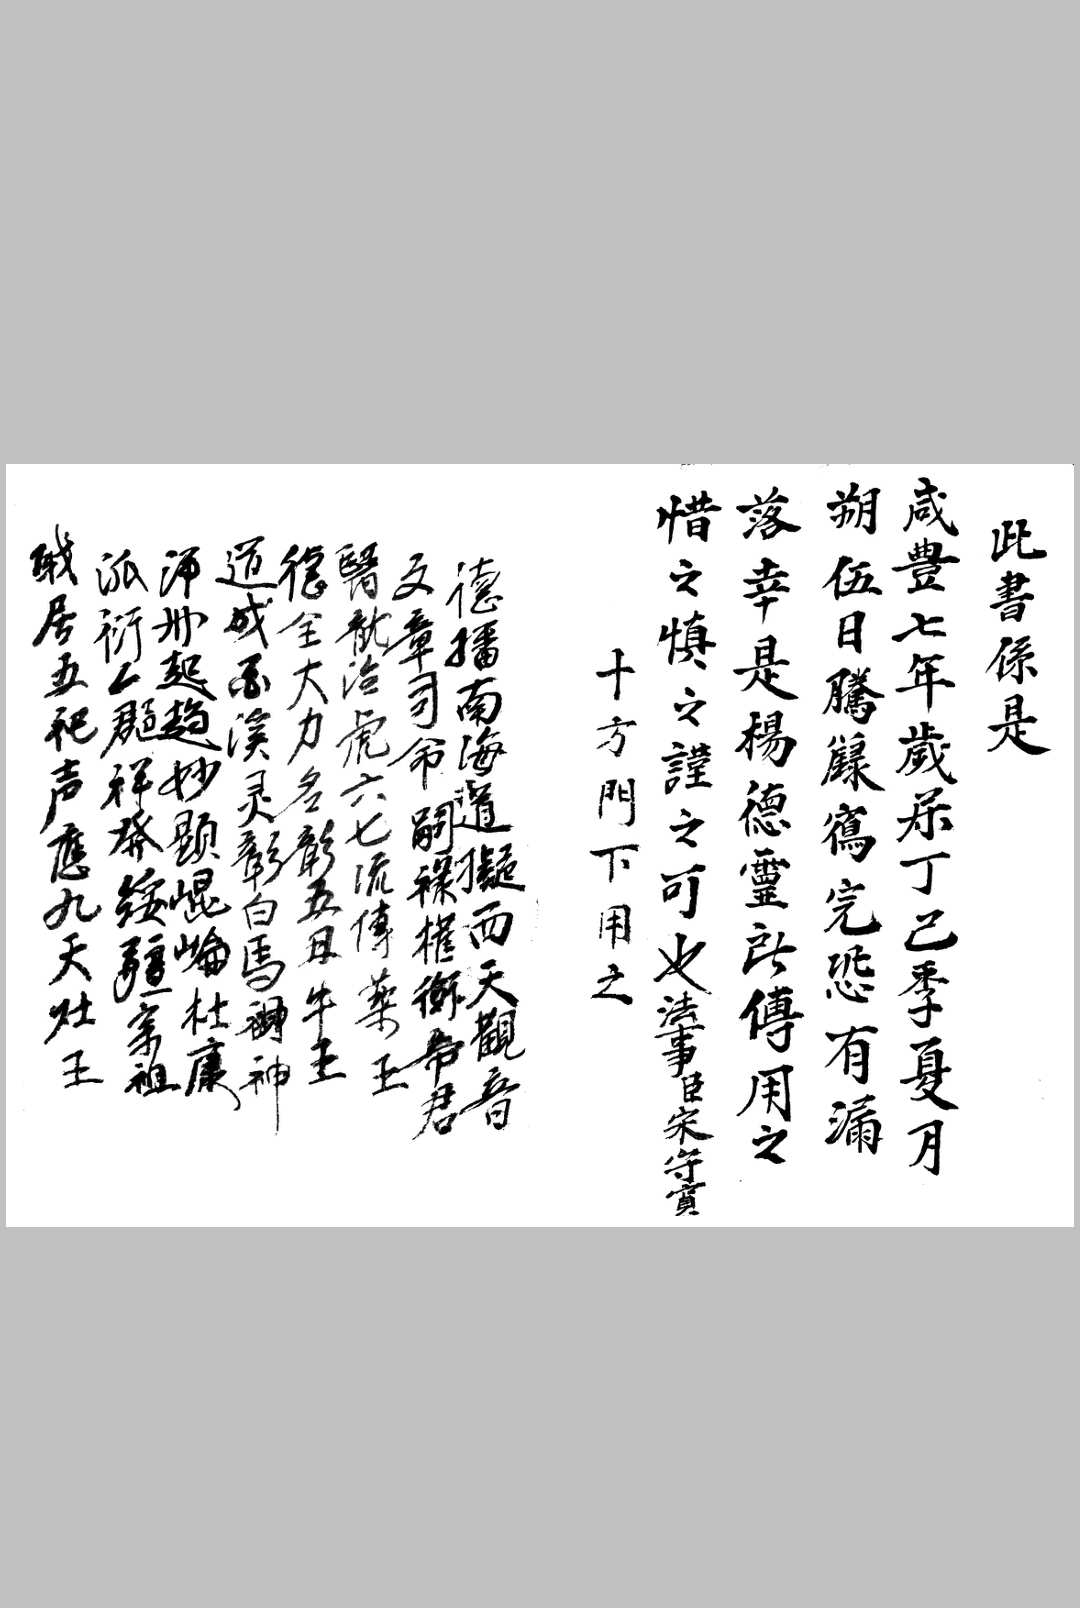 此書係是
咸豐七年歲次丁己季夏月
朔伍日騰錄寫完恐有漏
落幸是楊德靈所傳用之
惜之慎之謹之可也法事臣宋守賓
十方門下用之
德播南海道擬西天觀音
文章司命嗣祿權衡帝君
醫龍治虎六七流傳藥王
德全大力名彰五丑牛王
道成西溪灵彰白馬神
妙顯崐崘杜康
派衍祥發宗祖
職居五祀声應九天灶王